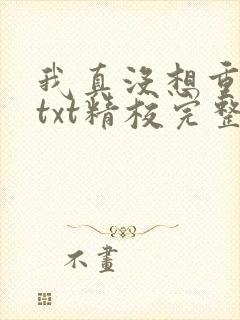 我真没想重
txt精校完整
不画